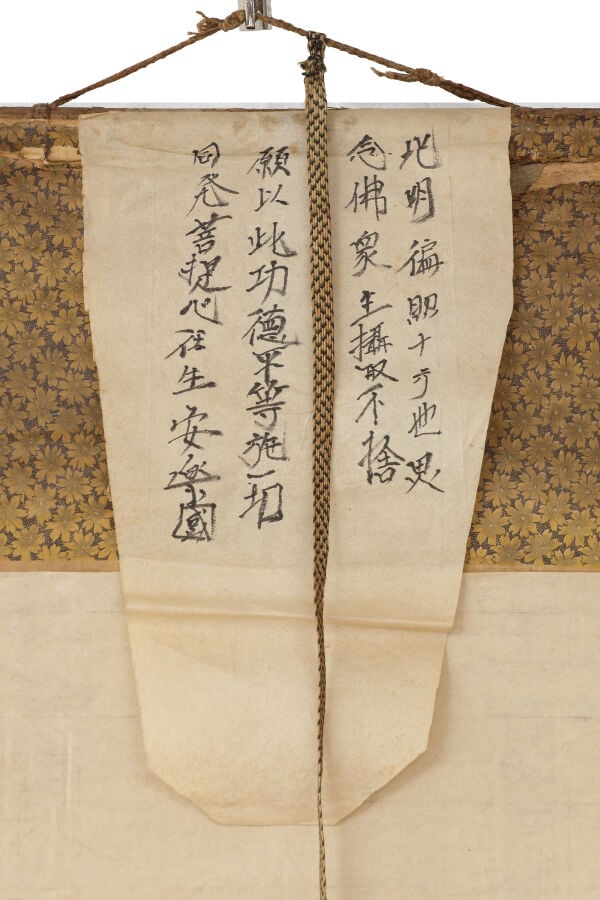 光明徧照十方世界
念佛衆生攝取不捨
願以此功德平等施一切
同発菩提心往生安楽國